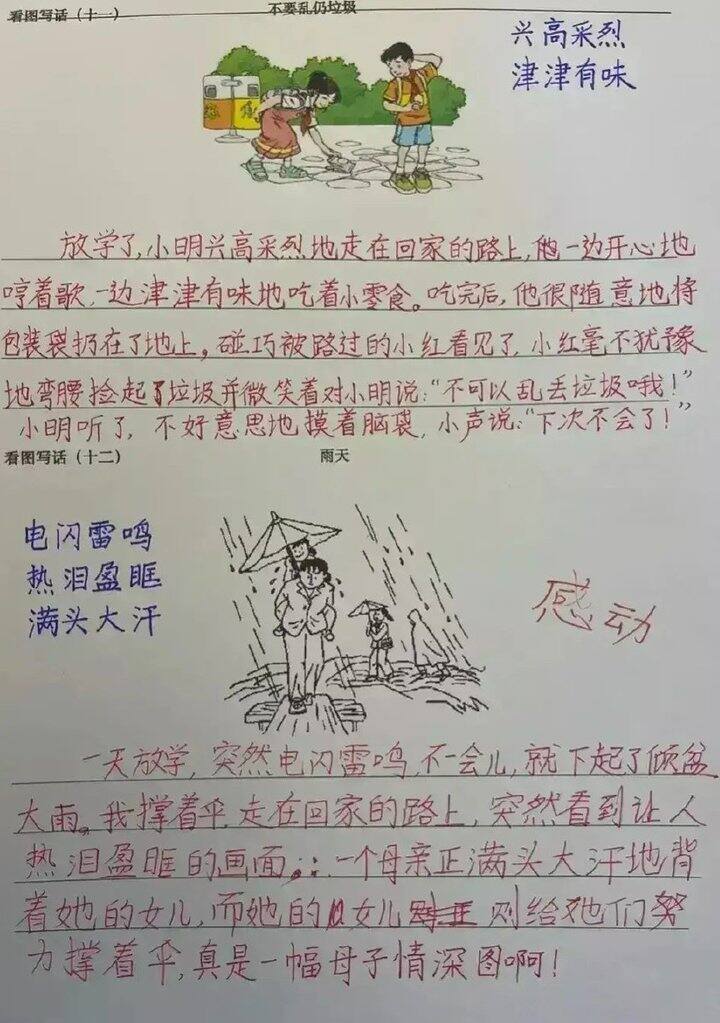 看图写话（十一）
不要乱仍垃圾
兴高采烈
津津有味
放学了,小明兴高采烈地走在回家的路上,他一边开心地
哼着歌,一边津津有味地吃着小零食。吃完后,他很随意地将
包装袋扔在了地上,碰巧被路过的小红看见了,小红毫不犹豫
地弯腰捡起了垃圾并微笑着对小明说:“不可以乱丢垃圾哦!”
小明听了,不好意思地摸着脑袋,小声说:“下次不会了!”
看图写话（十二）
雨天
电闪雷鸣
热泪盈眶
满头大汗
感动
一天放学,突然电闪雷鸣,不一会儿,就下起了倾盆
大雨。我撑着伞,走在回家的路上,突然看到让人
热泪盈眶的画面:一个母亲正满头大汗地背
着她的女儿,而她的女儿则给她们努
力撑着伞,真是一幅母子情深图啊!